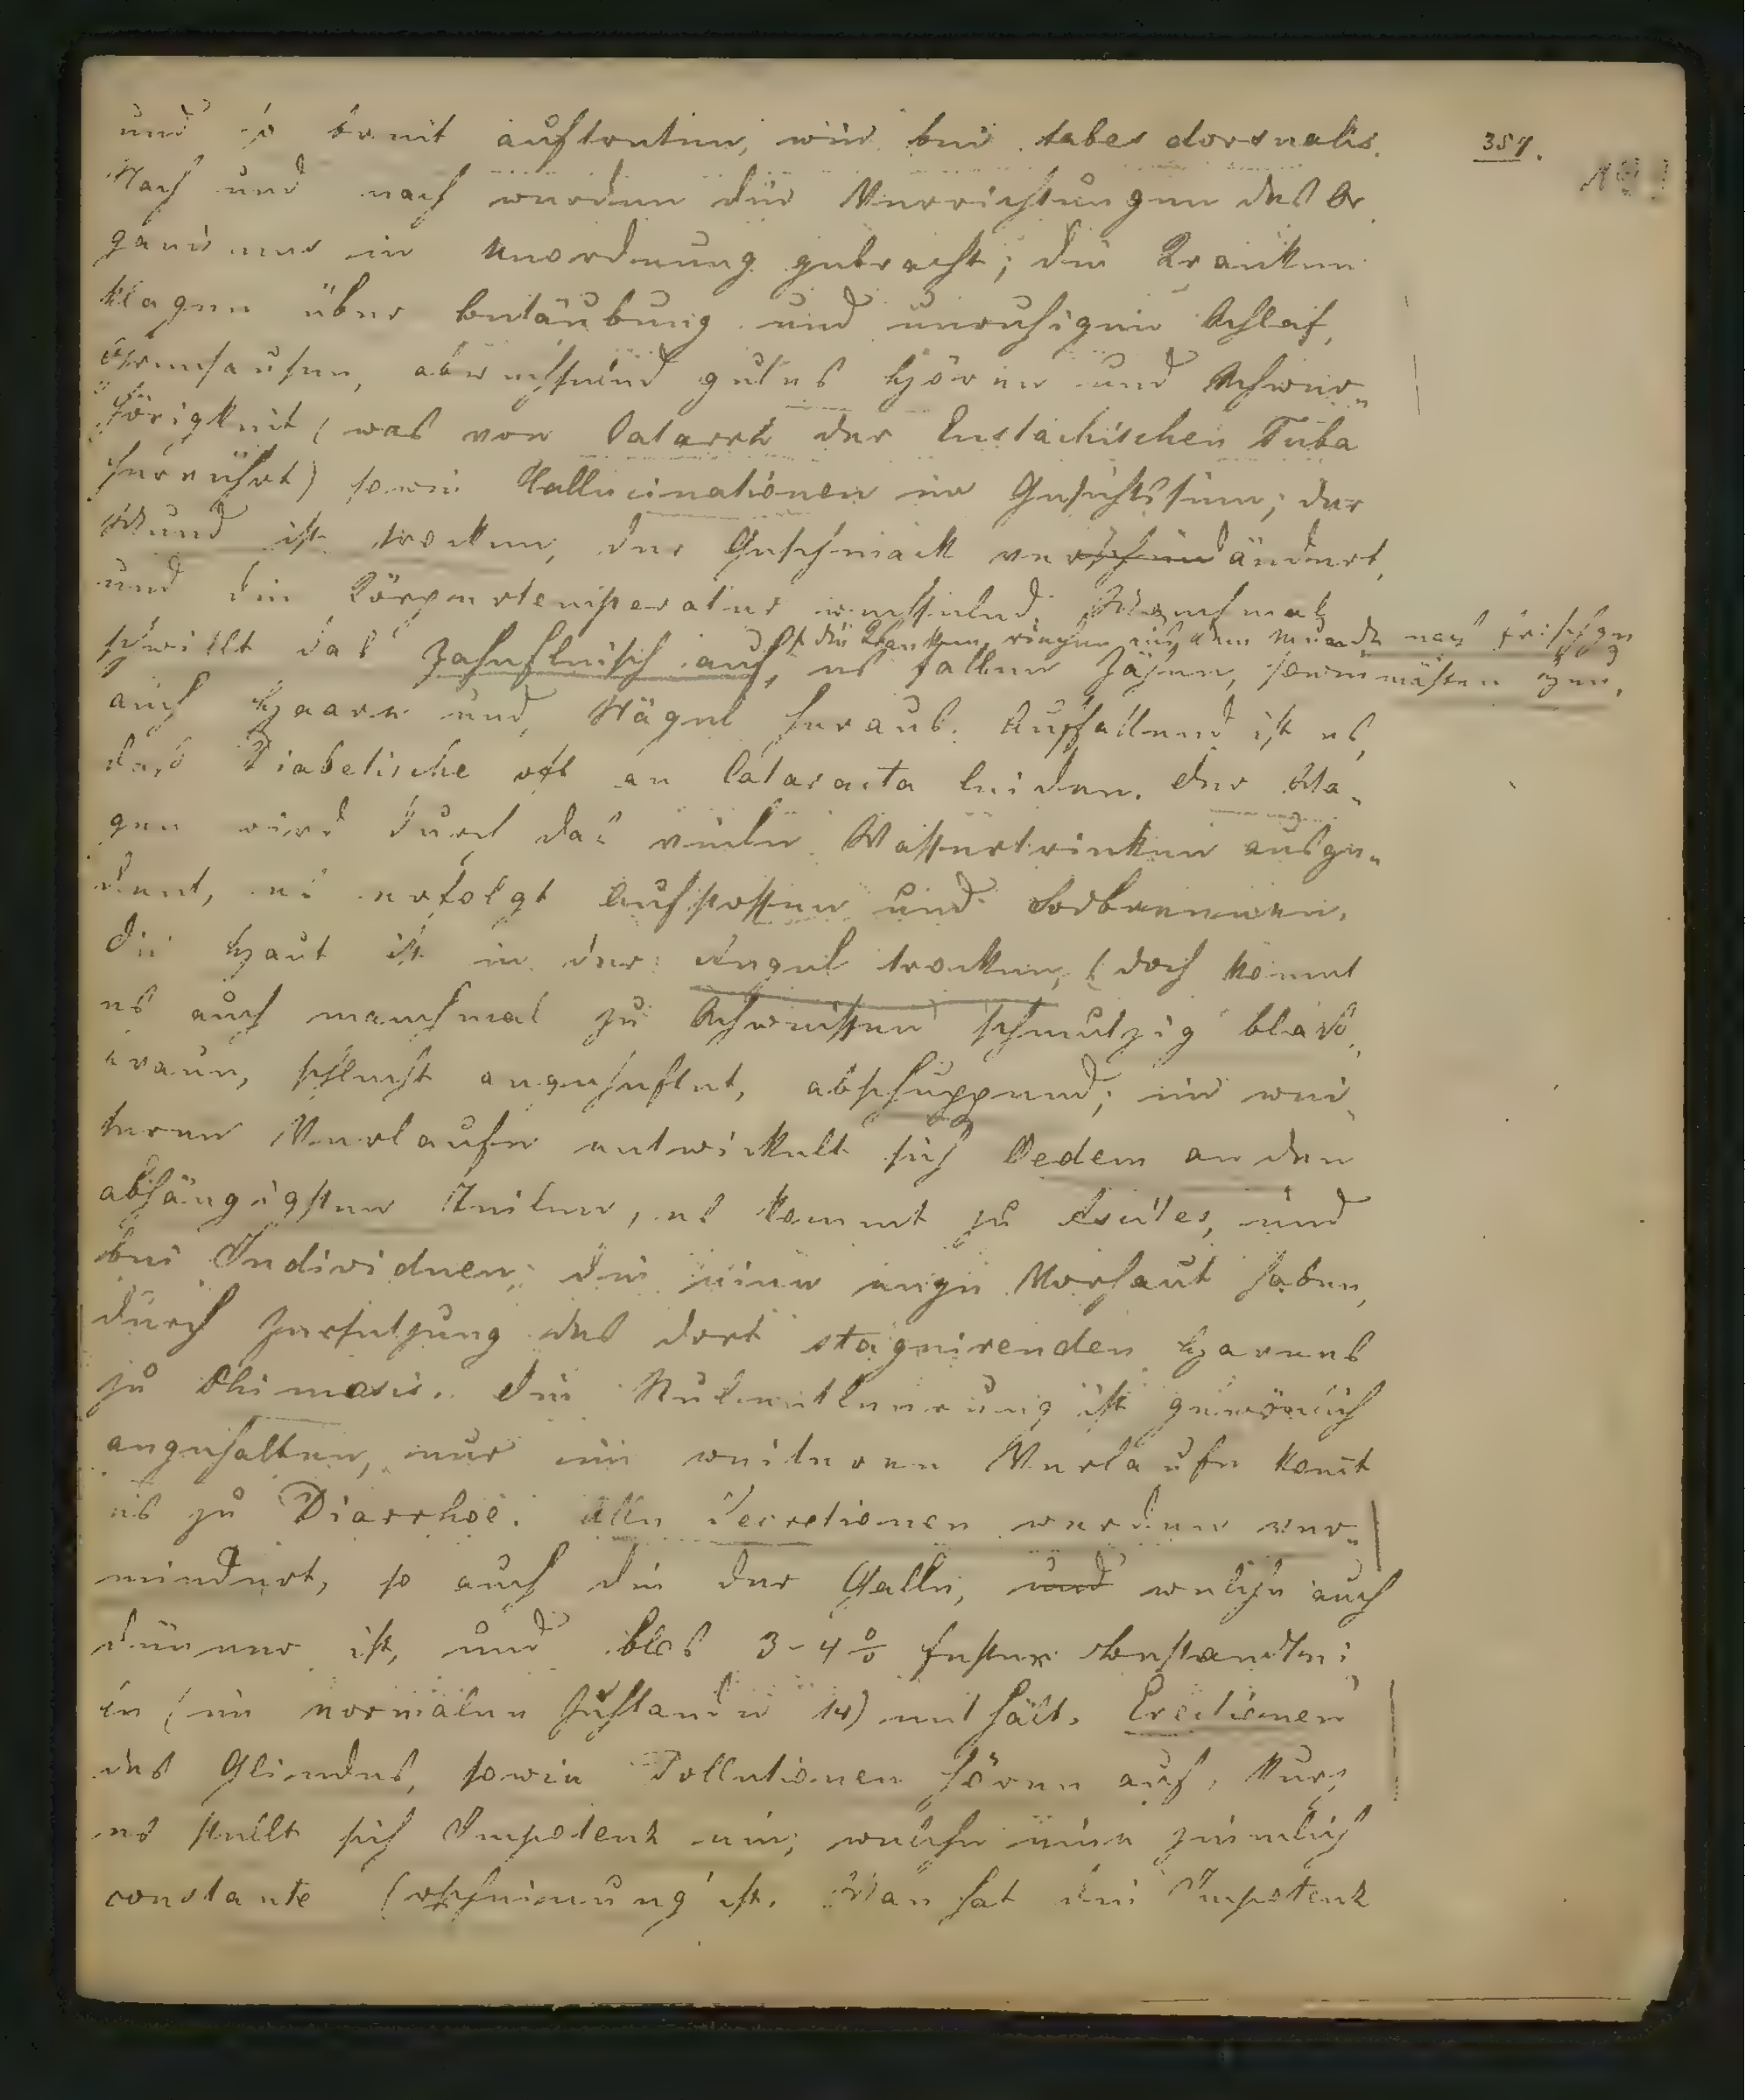 357.
und so breit auftreten, wie bei tabes dorsualis.
Nach und nach werden die Verrichtungen des Or
ganismus in Unordnung gebracht; die Kranken
klagen über Betäubung und unruhigen Schlaf,
Ohrensausen, abwechselnd gutes Hören und Schwer„
hörigkeit (was von Catarrh der Eustachischen Tuba
herrührt) sowie Hallucinationen im Gesichtssinn; der
Mund ist trocken, der Geschmack verändert,
und die Körpertemperatur wechselnd.
die Kranken riechen aus dem Munde nach frischen
schwillt das Zahnfleisch auch, es fallen Zähne, sowie
auch Haare und Nägel heraus. Auffallend ist es,
dass Diabetische oft an Cataracta leiden. Der Ma„
gen wird durch das viele Wassertrinken ausge„
dent, es erfolgt Aufstossen und Sodbrennen.
Die Haut ist in der Regel trocken, (doch kommt
es auch manchmal zu Schweissen) schmutzig blass,
braun, schlecht angeheftet, abschuppend; im wei
teren Verlaufe entwickelt sich Oedem an den
abhängigsten Theilen, es kommt zu Ascites, und
bei Individuen, die eine enge Vorhaut haben,
durch Zersetzung des dort stagnirenden Harnes
zu Phimosis. Die Stuhlentleerung ist gewönlich
angehalten, nur im weiteren Verlaufe komt
es zu Diarrhoe. Alle Secretionen werden ver„
mindert, so auch die der Galle, und welche auch
dünner ist, und blos 3-4% fester Bestandtei
le (im normalen Zustande 14) enthält. Erectionen
des Gliedes, sowie Pollutionen hören auf, kurz
es stellt sich Impotenz ein, welche eine ziemlich
constante Erscheinung ist. Man hat die Impotenz